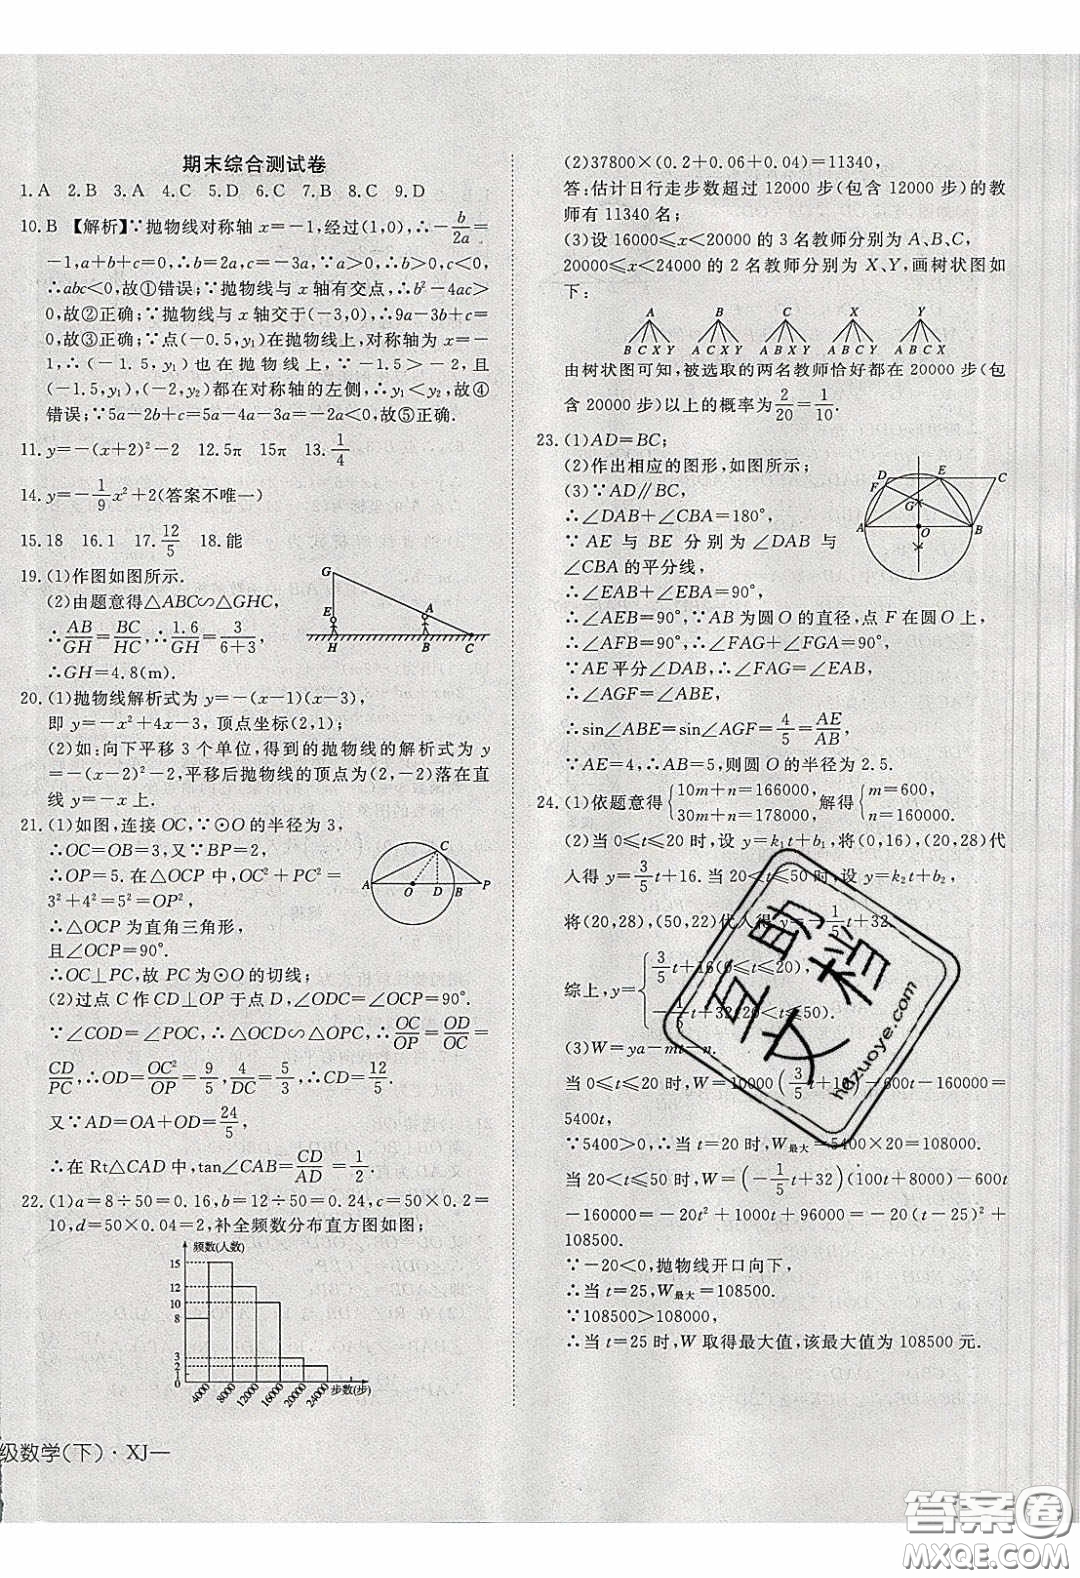 期末综合测试卷
1.A 2.B 3.A 4.C 5.D 6.C 7.B 8.C 9.D
10.B 【解析】∵抛物线对称轴 x=-1,经过(1,0),∴-b/2a=
-1,a+b+c=0,∴b=2a,c=-3a,∵a>0,∴b>0,c<0,
∴abc<0,故①错误;∵抛物线与 x 轴有交点,∴b²-4ac>
0,故②正确;∵抛物线与 x 轴交于(-3,0),∴9a-3b+c=
0,故③正确;∵点(-0.5,y₁)在抛物线上,对称轴为 x=-1,
∴(-1.5,y₁)也在抛物线上,∵-1.5>-2,且
(-1.5,y₁),(-2,y₂)都在对称轴的左侧,∴y₁<y₂,故④
错误;∵5a-2b+c=5a-4a-3a=-2a<0,故⑤正确.
11.y=-(x+2)²-2 12.5π 15π 13.1/4
14.y=-1/9x²+2(答案不唯一)
15.18 16.1 17.12/5 18.能
19.(1)作图如图所示.
(2)由题意得△ABC∽△GHC,
∴AB/GH=BC/HC,∴1.6/GH=3/(6+3)
∴GH=4.8(m).
G
E
A
H
B
C
20.(1)抛物线解析式为 y=-(x-1)(x-3),
即 y=-x²+4x-3,顶点坐标(2,1);
(2)如:向下平移 3 个单位,得到的抛物线的解析式为 y
=-(x-2)²-2,平移后抛物线的顶点为(2,-2)落在直
线 y=-x 上.
21.(1)如图,连接 OC,∵⊙O 的半径为 3,
∴OC=OB=3,又∵BP=2,
∴OP=5.在△OCP 中,OC²+PC²=
3²+4²=5²=OP²,
∴△OCP 为直角三角形,
且∠OCP=90°.
∴OC⊥PC,故 PC 为⊙O 的切线;
C
A
O
D
B
P
(2)过点 C 作 CD⊥OP 于点 D,∠ODC=∠OCP=90°.
∵∠COD=∠POC,∴△OCD∽△OPC,∴OC/OP=OD/OC=
CD/PC,∴OD=OC²/OP=9/5,4/DC=5/3,∴CD=12/5,
又∵AD=OA+OD=24/5,
∴在 Rt△CAD 中,tan∠CAB=CD/AD=1/2.
22.(1)a=8÷50=0.16,b=12÷50=0.24,c=50×0.2=
10,d=50×0.04=2,补全频数分布直方图如图;
频数(人数)
15
12
10
8
3
2
1
0
4000 8000 12000 16000 20000 24000 步数(步)
(2)37800×(0.2+0.06+0.04)=11340,
答:估计日行走步数超过 12000 步(包含 12000 步)的教
师有 11340 名;
(3)设 16000≤x<20000 的 3 名教师分别为 A、B、C,
20000≤x<24000 的 2 名教师分别为 X、Y,画树状图如
下:
A B C X Y
B C X Y A C X Y A B X Y A B C Y A B C X
由树状图可知,被选取的两名教师恰好都在 20000 步(包
含 20000 步)以上的概率为2/20=1/10.
23.(1)AD=BC;
(2)作出相应的图形,如图所示;
(3)∵AD∥BC,
∴∠DAB+∠CBA=180°,
∵AE 与 BE 分别为∠DAB 与
∠CBA 的平分线,
D
E
C
F
G
A
O
B
∴∠EAB+∠EBA=90°,
∴∠AEB=90°,∵AB 为圆 O 的直径,点 F 在圆 O 上,
∴∠AFB=90°,∴∠FAG+∠FGA=90°,
∵AE 平分∠DAB,∴∠FAG=∠EAB,
∴∠AGF=∠ABE,
∴sin∠ABE=sin∠AGF=4/5=AE/AB,
∵AE=4,∴AB=5,则圆 O 的半径为 2.5.
24.(1)依题意得{10m+n=166000, 30m+n=178000, 解得{m=600, n=160000.
(2)当 0≤t≤20 时,设 y=k₁t+b₁,将(0,16),(20,28)代
入得 y=3/5t+16.当 20<t≤50 时,设 y=k₂t+b₂,
将(20,28),(50,22)代入得 y=-1/5t+32.
综上,y={3/5t+16(0≤t≤20), -1/5t+32(20<t≤50).
(3)W=ya-mt-n.
当 0≤t≤20 时,W=10000(3/5t+16)-600t-160000=
5400t,
∵5400>0,∴当 t=20 时,W最大=5400×20=108000.
当 20<t≤50 时,W=(-1/5t+32)(100t+8000)-600t
-160000=-20t²+1000t+96000=-20(t-25)²+
108500.
∵-20<0,抛物线开口向下,
∴当 t=25,W最大=108500.
∵108500>108000,
∴当 t=25 时,W 取得最大值,该最大值为 108500 元.
级数学(下)·XJ—
互助文档
hdzuoye.com
答案圈
MXQE.COM